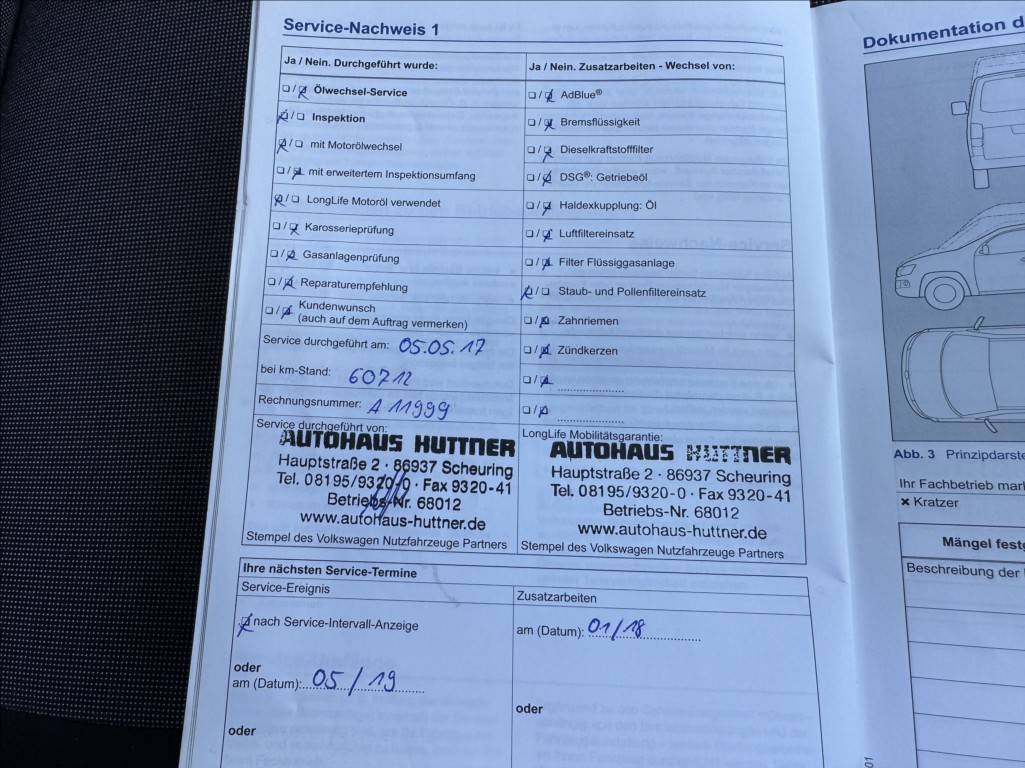 Service-Nachweis 1
Ja / Nein. Durchgeführt wurde:
☐/☒ Ölwechsel-Service
☒/☐ Inspektion
☒/☐ mit Motorölwechsel
☐/☒ mit erweitertem Inspektionsumfang
☒/☐ LongLife Motoröl verwendet
☐/☒ Karosserieprüfung
☐/☒ Gasanlagenprüfung
☐/☒ Reparaturempfehlung
☐/☒ Kundenwunsch
(auch auf dem Auftrag vermerken)
Service durchgeführt am: 05.05.17
bei km-Stand: 60712
Rechnungsnummer: A 11999
Service durchgeführt von:
AUTOHAUS HUTTNER
Hauptstraße 2 · 86937 Scheuring
Tel. 08195/9320-0 · Fax 9320-41
Betriebs-Nr. 68012
www.autohaus-huttner.de
Stempel des Volkswagen Nutzfahrzeuge Partners
Ja / Nein. Zusatzarbeiten - Wechsel von:
☐/☒ AdBlue®
☐/☒ Bremsflüssigkeit
☐/☒ Dieselkraftstofffilter
☐/☒ DSG®: Getriebeöl
☐/☒ Haldexkupplung: Öl
☐/☒ Luftfiltereinsatz
☐/☒ Filter Flüssiggasanlage
☒/☐ Staub- und Pollenfiltereinsatz
☐/☒ Zahnriemen
☐/☒ Zündkerzen
☐/☒ ....................
☐/☒ ....................
LongLife Mobilitätsgarantie:
AUTOHAUS HUTTNER
Hauptstraße 2 · 86937 Scheuring
Tel. 08195/9320-0 · Fax 9320-41
Betriebs-Nr. 68012
www.autohaus-huttner.de
Stempel des Volkswagen Nutzfahrzeuge Partners
Ihre nächsten Service-Termine
Service-Ereignis
☒ nach Service-Intervall-Anzeige
oder
am (Datum): 05/19
oder
Zusatzarbeiten
am (Datum): 01/18
oder
Dokumentation d
Abb. 3 Prinzipdarste
Ihr Fachbetrieb mar
× Kratzer
Mängel festg
Beschreibung der
01